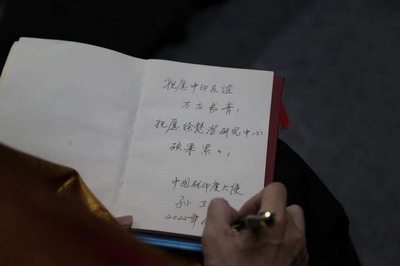 祝愿中印友谊
万古长青！
祝愿徐梵澄研究中心
硕果累々！
中国驻印度大使
孙卫